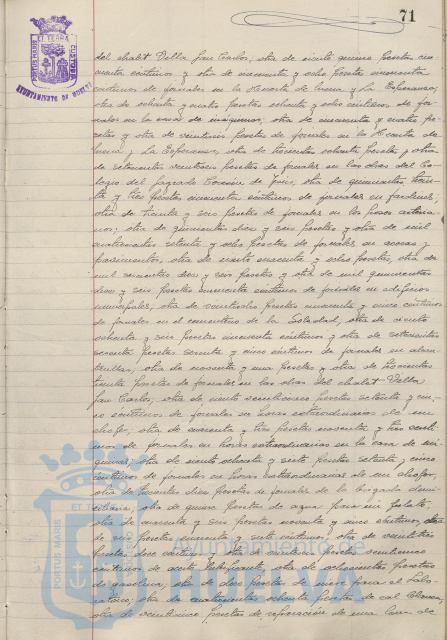 71
PORTUS MARIS ET TERRÆ CUSTODIA
AYUNTAMIENTO DE HUELVA
del chalet Villa San Carlos, otra de ciento quince pesetas cin-
cuenta céntimos y otra de cincuenta y ocho pesetas cincuenta
céntimos de jornales en la Huerta de Mena y La Esperanza;
otra de ochenta y cuatro pesetas ochenta y ocho céntimos de jor-
nales en la casa de máquinas, otra de cincuenta y cuatro pe-
setas y otra de veintiseis pesetas de jornales en la Huerta de
Mena y La Esperanza, otra de trescientas ochenta pesetas y otra
de setecientas veintiseis pesetas de jornales en las obras del Co-
legio del Sagrado Corazón de Jesús, otra de quinientas trein-
ta y tres pesetas cincuenta céntimos de jornales en jardines;
otra de treinta y seis pesetas de jornales en los pozos artesia-
nos; otra de quinientas diez y seis pesetas y otra de mil
cuatrocientas setenta y ocho pesetas de jornales en aceras y
pavimentos, otra de ciento cuarenta y ocho pesetas, otra de
mil seiscientas diez y seis pesetas y otra de mil quinientas
diez y seis pesetas cincuenta céntimos de jornales en edificios
municipales, otra de veintiseis pesetas cincuenta y cinco céntimos
de jornales en el cementerio de la Soledad, otra de ciento
ochenta y seis pesetas cincuenta céntimos y otra de setecientas
sesenta pesetas setenta y cinco céntimos de jornales en alcan-
tarillas; otra de noventa y una pesetas y otra de trescientas
treinta pesetas de jornales en las obras del chalet Villa
San Carlos, otra de ciento pesetas setenta y cin-
co céntimos de jornales en horas extraordinarias de un
chofer, otra de cuarenta y tres pesetas noventa y tres cénti-
mos de jornales en horas extraordinarias en la casa de má-
quinas; otra de ciento ochenta y siete pesetas setenta y cinco
céntimos de jornales en horas extraordinarias de un chofer,
otra de doscientas diez pesetas de jornales de la brigada domi-
ciliaria; otra de quince pesetas de agua para un
otra de cuarenta y seis pesetas noventa y cinco céntimos, otra
de seis pesetas cuarenta y siete céntimos, otra de veintitres
pesetas doce céntimos y otra de pesetas
céntimos de aceite lubrificante, otra de ochocientas pesetas
de gasolina, otra de diez pesetas de para el Labo-
ratorio; otra de cuatrocientas ochenta pesetas de cal
otra de veinticinco pesetas de reparación de una de
PORTUS MARIS ET TERRÆ CUSTODIA
Ayuntamiento de
HUELVA